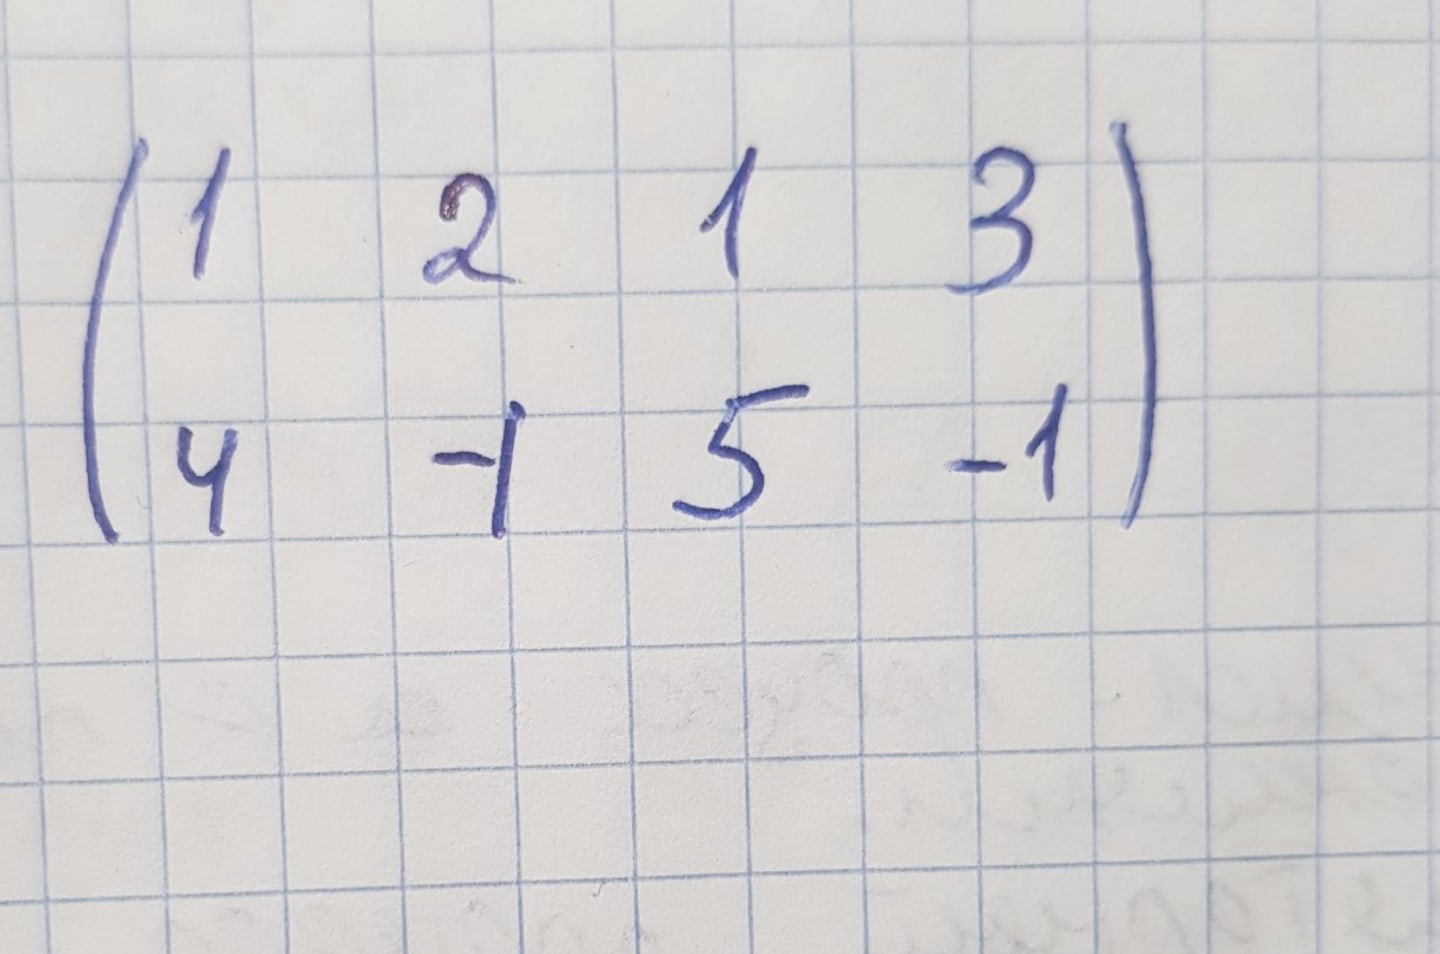 1 2 1 3
4 -1 5 -1